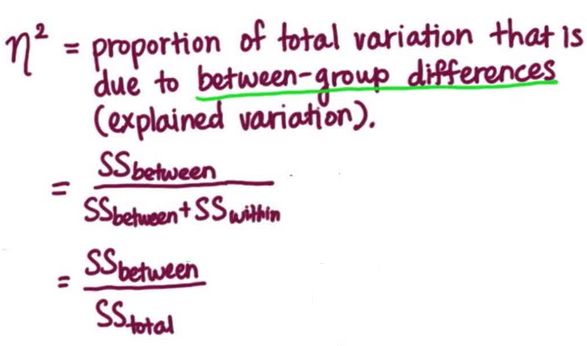 η² = proportion of total variation that is
due to between-group differences
(explained variation).
= SSbetween
SSbetween + SSwithin
= SSbetween
SStotal